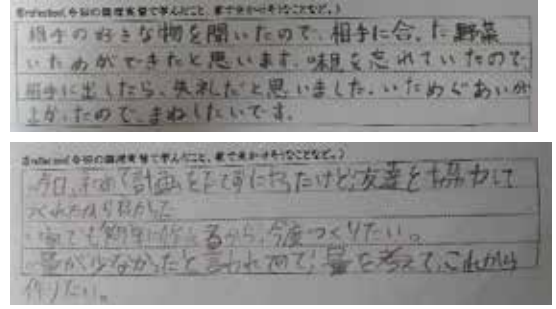 ⑤reflection(今回の調理実習で学んだこと、家で生かせそうなことなど。)
相手の好きな物を聞いたので、相手に合った野菜
いためができたと思います。味見を忘れていたので
相手に出したら、失礼だと思いました。いためぐあいが
よかったので、まねしたいです。
⑤reflection(今回の調理実習で学んだこと、家で生かせそうなことなど。)
今日、初めて計画をたてずにやったけど、友達と協力して
つくれたから良かった
家でも簡単に作れるから、今度つくりたい。
量が少なかったと言われたので、量を考えて、これから
作りたい。